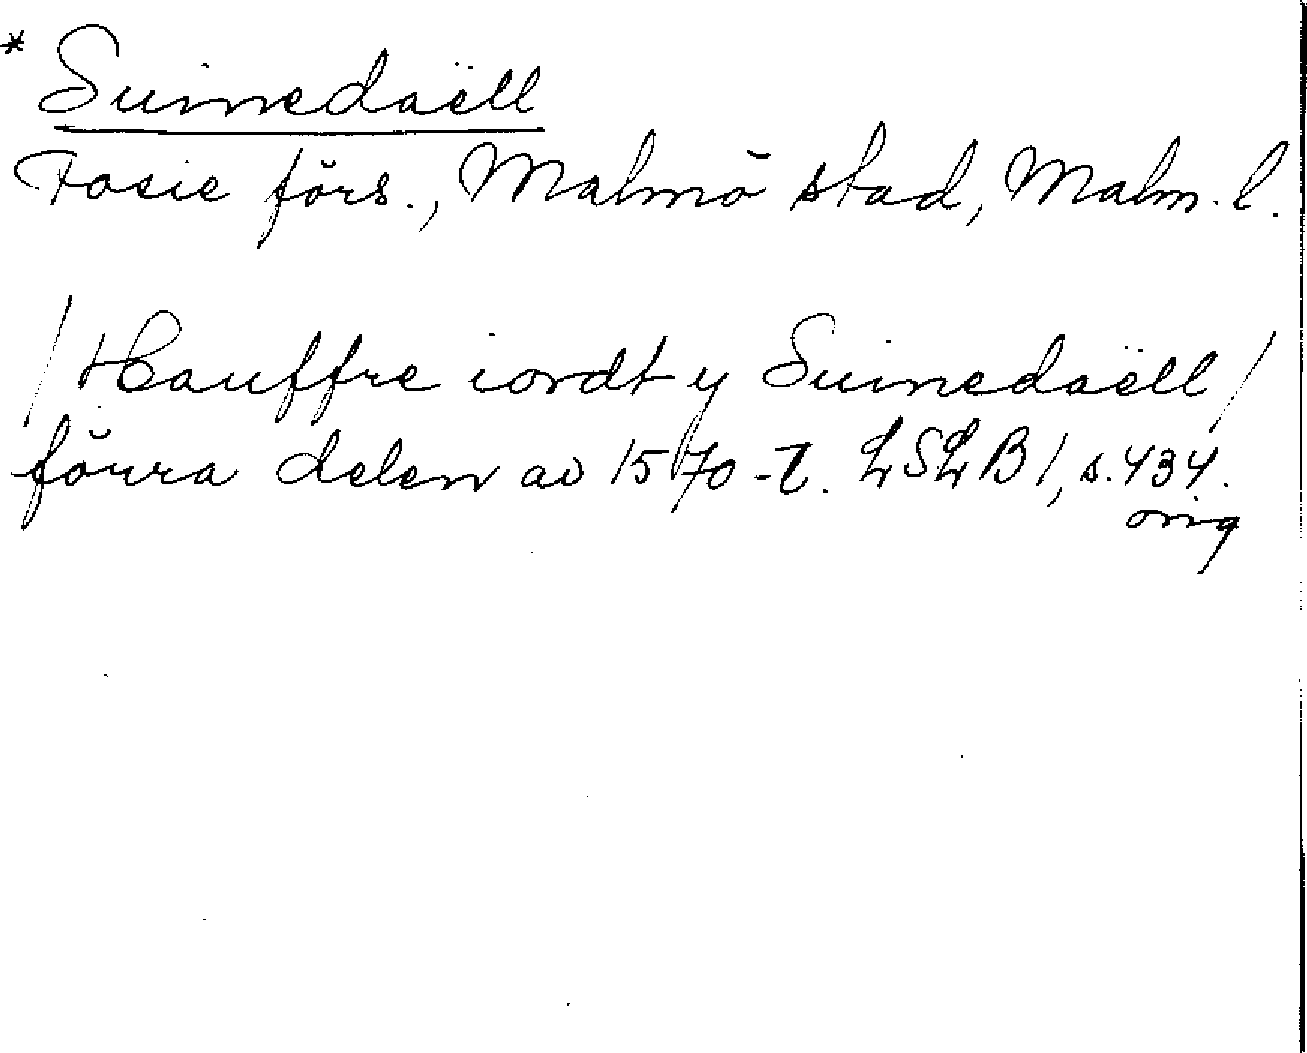 * Suinedaëll
Fosie förs., Malmö stad, Malm. l.
/ Hauffre iordt y Suinedaëll /
förra delen av 1570-t. LSLB 1, s. 434.
orig